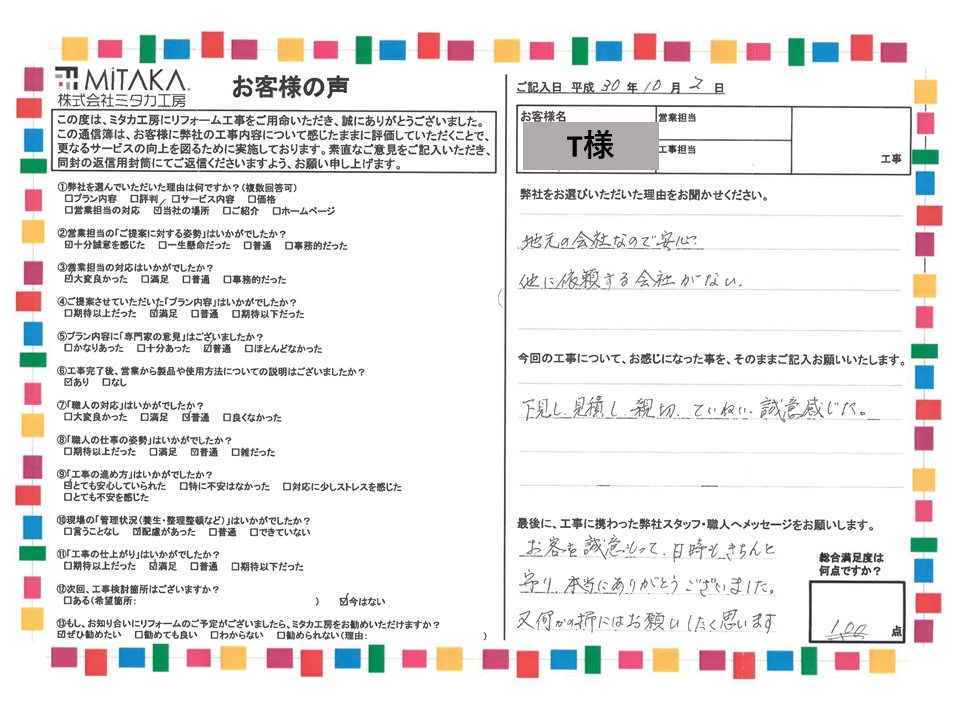 MiTAKA.
株式会社ミタカ工房
お客様の声
この度は、ミタカ工房にリフォーム工事をご用命いただき、誠にありがとうございました。
この通信簿は、お客様に弊社の工事内容について感じたままに評価していただくことで、
更なるサービスの向上を図るために実施しております。素直なご意見をご記入いただき、
同封の返信用封筒にてご返信くださいますよう、お願い申し上げます。
①弊社を選んでいただいた理由は何ですか？（複数回答可）
□プラン内容 □評判 □サービス内容 □価格
□営業担当の対応 ☑当社の場所 □ご紹介 □ホームページ
②営業担当の「ご提案に対する姿勢」はいかがでしたか？
☑十分誠意を感じた □一生懸命だった □普通 □事務的だった
③営業担当の対応はいかがでしたか？
☑大変良かった □満足 □普通 □事務的だった
④ご提案させていただいた「プラン内容」はいかがでしたか？
□期待以上だった ☑満足 □普通 □期待以下だった
⑤プラン内容に「専門家の意見」はございましたか？
□かなりあった □十分あった ☑普通 □ほとんどなかった
⑥工事完了後、営業から製品や使用方法についての説明はございましたか？
☑あり □なし
⑦「職人の対応」はいかがでしたか？
□大変良かった □満足 ☑普通 □良くなかった
⑧「職人の仕事の姿勢」はいかがでしたか？
□期待以上だった □満足 ☑普通 □雑だった
⑨「工事の進め方」はいかがでしたか？
☑とても安心していられた □特に不安はなかった □対応に少しストレスを感じた
□とても不安を感じた
⑩現場の「管理状況（養生・整理整頓など）」はいかがでしたか？
□言うことなし ☑配慮があった □普通 □できていない
⑪「工事の仕上がり」はいかがでしたか？
□期待以上だった ☑満足 □普通 □期待以下だった
⑫次回、工事検討箇所はございますか？
□ある（希望箇所: ） ☑今はない
⑬もし、お知り合いにリフォームのご予定がございましたら、ミタカ工房をお勧めいただけますか？
☑ぜひ勧めたい □勧めても良い □わからない □勧められない（理由: ）
ご記入日 平成 30 年 10 月 2 日
お客様名
T様
営業担当
工事担当
工事
弊社をお選びいただいた理由をお聞かせください。
地元の会社なので安心?
他に依頼する会社がない.
今回の工事について、お感じになった事を、そのままご記入お願いいたします。
下見し.見積し.親切.ていねい.誠意感じた。
最後に、工事に携わった弊社スタッフ・職人へメッセージをお願いします。
お客を誠意もって、日時もきちんと
守り.本当にありがとうございました。
又何かの折にはお願いしたく思います
総合満足度は
何点ですか？
100 点